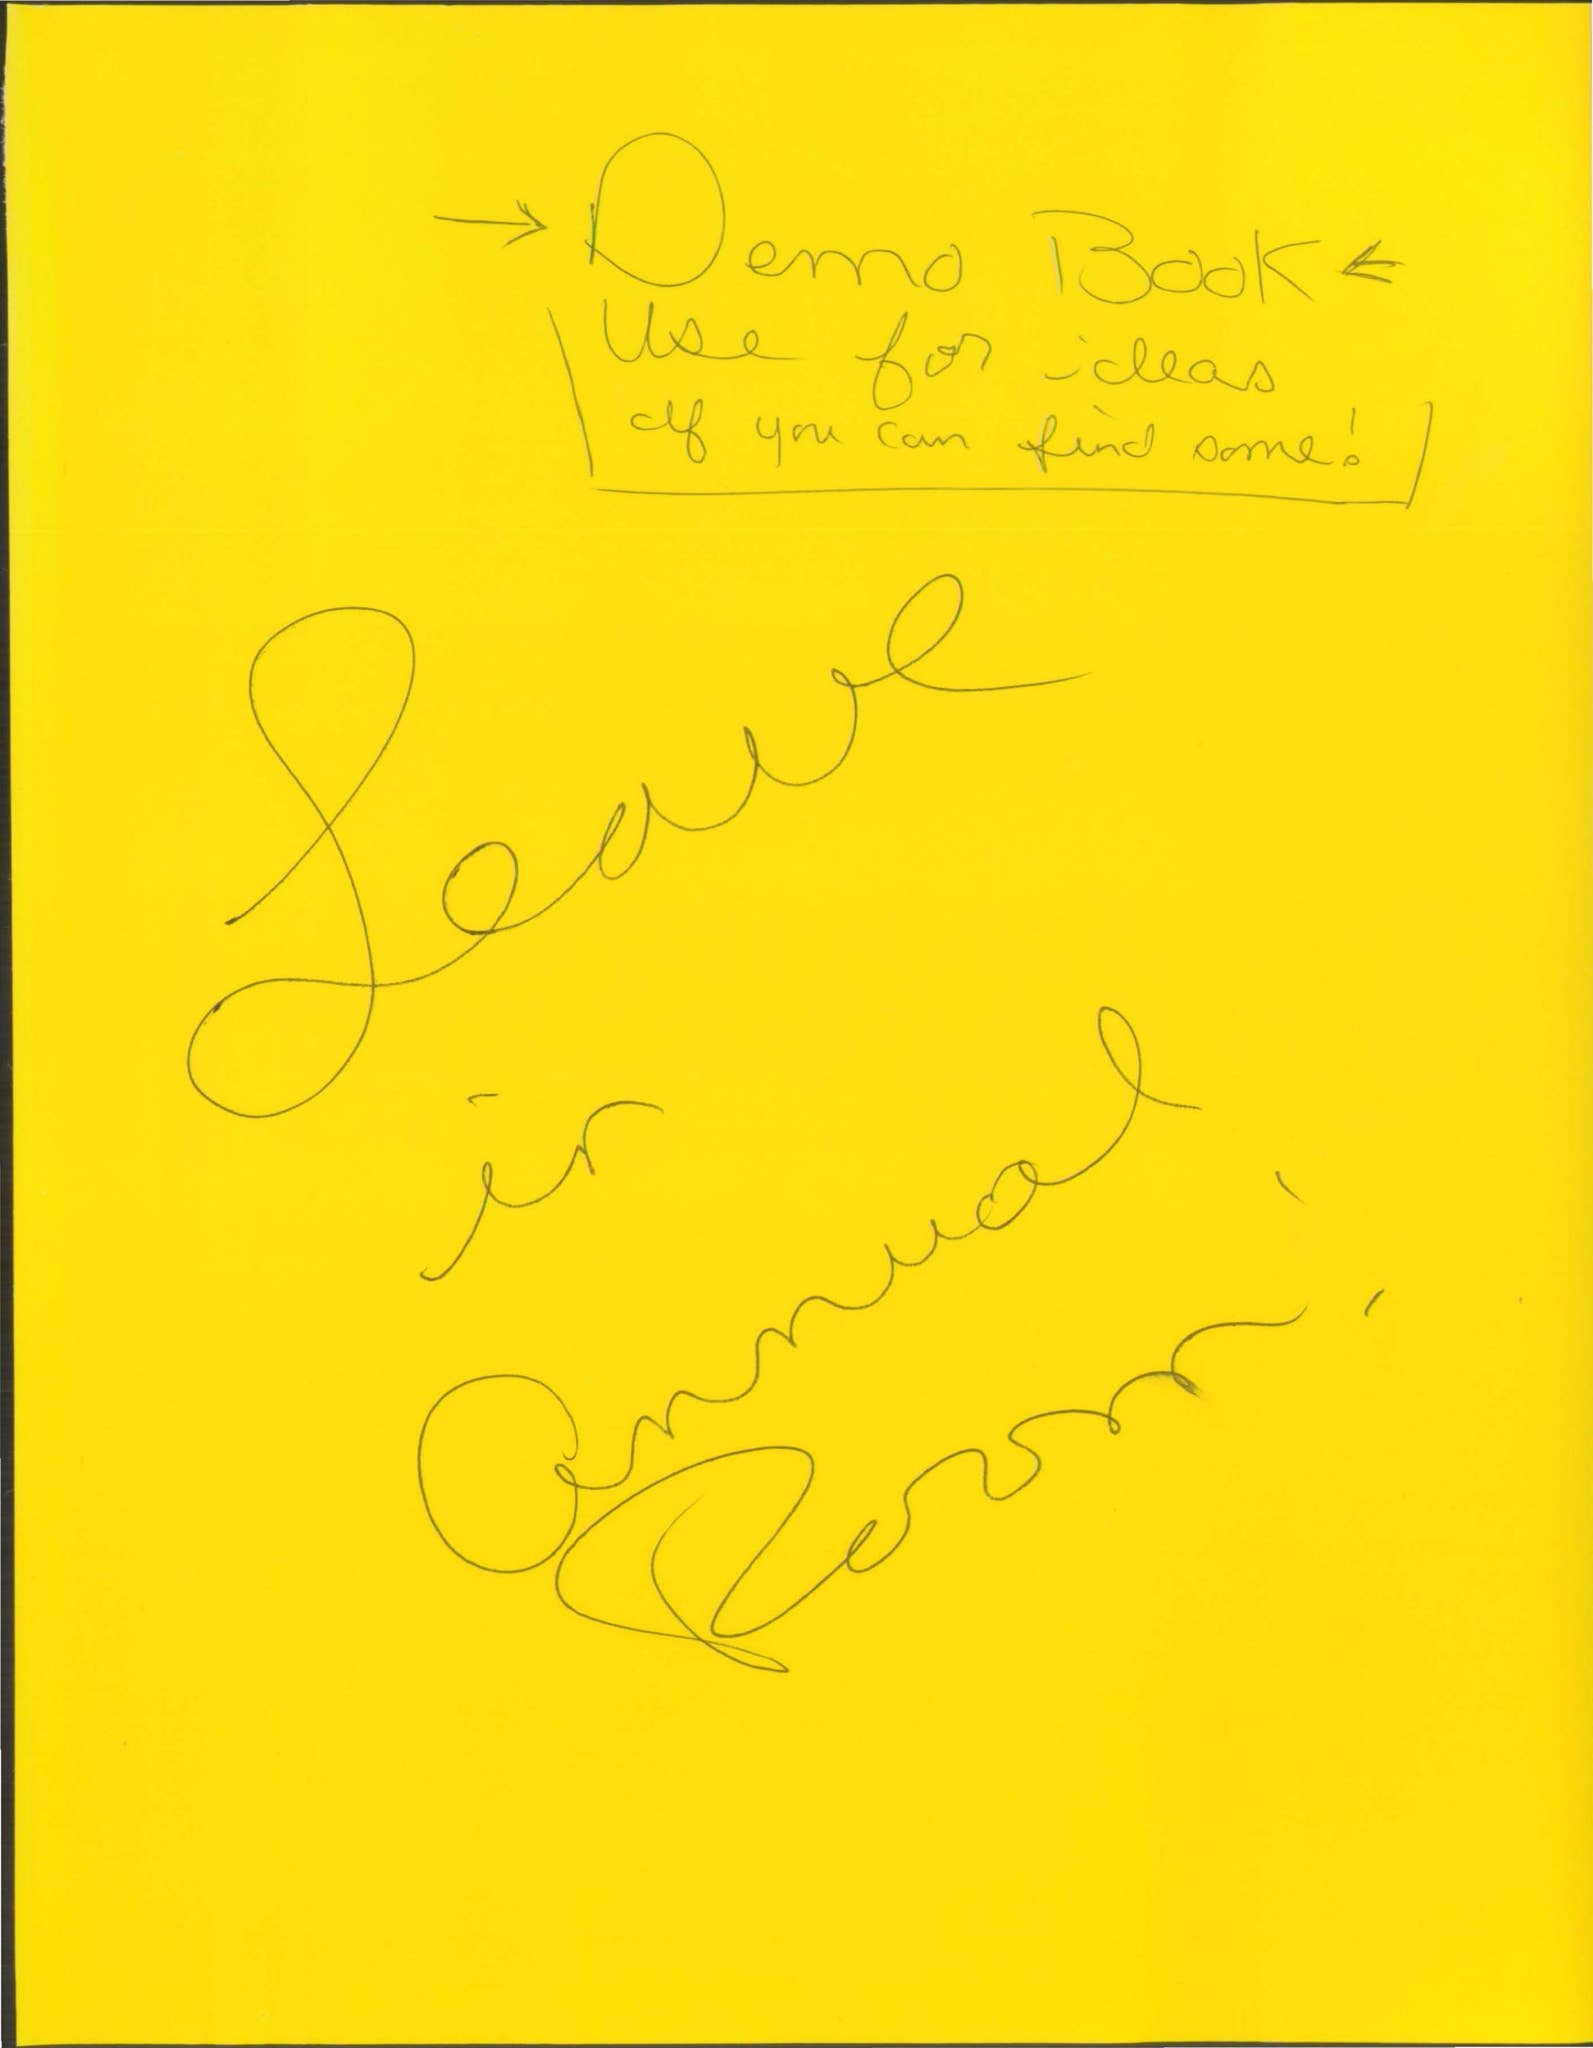 → Demo Book ←
Use for ideas
If you can find some!
Leave
in
Annual
Room